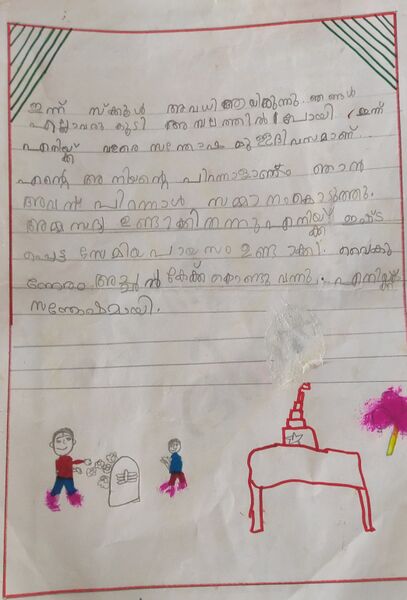 ഇന്ന് സ്ക്കൂൾ അവധിആയിരുന്നു. ഞങ്ങൾ
എല്ലാവരു കൂടി അമ്പലത്തിൽ പോയി ഇന്ന്
എനിയ്ക്ക് വളരെ സന്തോഷ മുള്ളദിവസമാണ്...
എന്റെ അനിയന്റെ പിറന്നാളാണ് ഞാൻ
അവന് പിറന്നാൾ സമ്മാനംകൊടുത്തു.
അമ്മ സദ്യ ഉണ്ടാക്കി തന്നു എനിയ്ക്ക് ഇഷ്ട
പ്പെട്ട സേമിയ പായസം ഉണ്ടാക്കി. വൈകു
ന്നേരം അച്ഛൻ കേക്ക് കൊണ്ടു വന്നു. എനിയ്ക്ക്
സന്തോഷമായി.